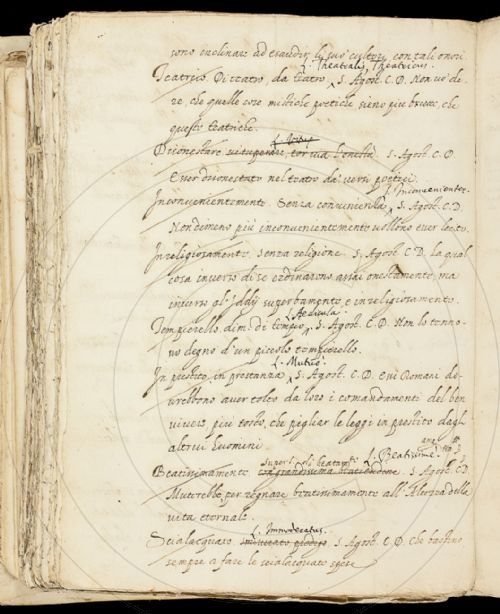 sono inclinati ad esaudir li suoi cultori con tali onori.
L. Theatralis, Theatricus.
Teatrico. Di teatro, da teatro. S. Agost. C. D. Non vo' di-
re, che quelle cose mistiche poetiche sieno più brutte, che
queste teatriche.
Disonestare vituperare, tor via l'onestà. S. Agost. C. D.
Esser disonestato nel teatro da' versi poetici.
L. Inconvenienter.
Inconvenientemente. Senza convenienza. S. Agost. C. D.
Nondimeno più inconvenientemente vollono aver letto.
Inreligiosamente. Senza religione. S. Agost. C. D. la qual
cosa inverso di se ordinarono assai onestamente, ma
inverso gl'Iddij superbamente, e inreligiosamente.
L. Aedicula.
Tempierello. dim. di tempio. S. Agost. C. D. Non lo tenno-
no degno d'un piccolo tempierello.
L. Mutuò.
In prestito in prestanza. S. Agost. C. D. E i Romani do-
verebbono aver tolto da loro i comandamenti del ben
vivere, più tosto, che pigliar le leggi in prestito dagli
altrui huomini.
superl. di beatam. L. Beatissime.
Beatissimamente con grandissima beatitudine. S. Agost. C. D.
Muterebbe per regnare beatissimamente all'Altezza della
vita eternale.
L. Immoderatus.
Scialacquato. smisurato prodigo. S. Agost. C. D. Che bastino
sempre a fare le scialacquate spese